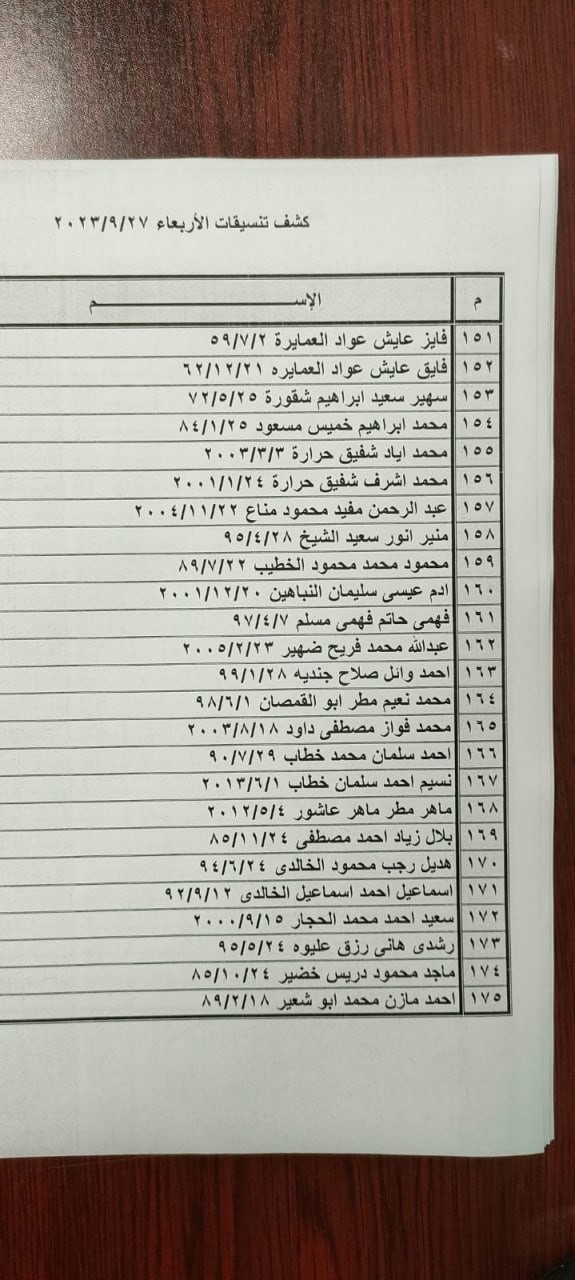 كشف تنسيقات الأربعاء ٢٠٢٣/٩/٢٧
م الإســـــــــــــم
١٥١ فايز عايش عواد العمايرة ٥٩/٧/٢
١٥٢ فايق عايش عواد العمايره ٦٢/١٢/٢١
١٥٣ سهير سعيد ابراهيم شقورة ٧٢/٥/٢٥
١٥٤ محمد ابراهيم خميس مسعود ٨٤/١/٢٥
١٥٥ محمد اياد شفيق حرارة ٢٠٠٣/٣/٣
١٥٦ محمد اشرف شفيق حرارة ٢٠٠١/١/٢٤
١٥٧ عبد الرحمن مفيد محمود مناع ٢٠٠٤/١١/٢٢
١٥٨ منير انور سعيد الشيخ ٩٥/٤/٢٨
١٥٩ محمود محمد محمود الخطيب ٨٩/٧/٢٢
١٦٠ ادم عيسى سليمان النباهين ٢٠٠١/١٢/٢٠
١٦١ فهمى حاتم فهمى مسلم ٩٧/٤/٧
١٦٢ عبدالله محمد فريح ضهير ٢٠٠٥/٢/٢٣
١٦٣ احمد وائل صلاح جنديه ٩٩/١/٢٨
١٦٤ محمد نعيم مطر ابو القمصان ٩٨/٦/١
١٦٥ محمد فواز مصطفى داود ٢٠٠٣/٨/١٨
١٦٦ احمد سلمان محمد خطاب ٩٠/٧/٢٩
١٦٧ نسيم احمد سلمان خطاب ٢٠١٣/٦/١
١٦٨ ماهر مطر ماهر عاشور ٢٠١٢/٥/٤
١٦٩ بلال زياد احمد مصطفى ٨٥/١١/٢٤
١٧٠ هديل رجب محمود الخالدى ٩٤/٦/٢٤
١٧١ اسماعيل احمد اسماعيل الخالدى ٩٢/٩/١٢
١٧٢ سعيد احمد محمد الحجار ٢٠٠٠/٩/١٥
١٧٣ رشدى هانى رزق عليوه ٩٥/٥/٢٤
١٧٤ ماجد محمود دريس خضير ٨٥/١٠/٢٤
١٧٥ احمد مازن محمد ابو شعير ٨٩/٢/١٨